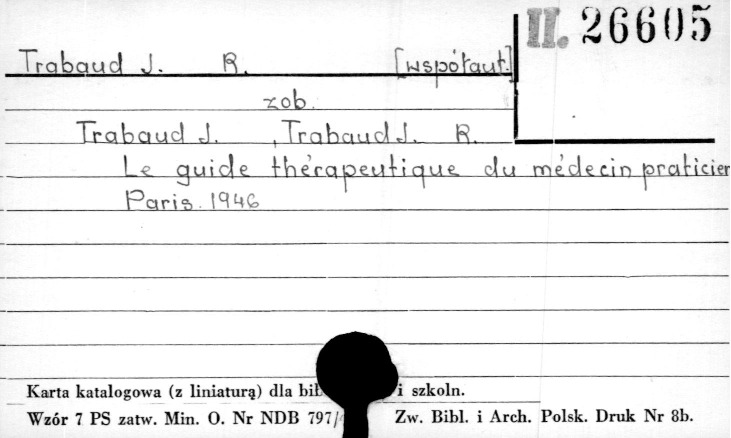 II. 26605
Trabaud J. R. [współaut.]
zob.
Trabaud J. , Trabaud J. R.
Le guide thérapeutique du médecin praticien
Paris. 1946
Karta katalogowa (z liniaturą) dla i szkoln.
Wzór 7 PS zatw. Min. O. Nr NDB 797/ Zw. Bibl. i Arch. Polsk. Druk Nr 8b.